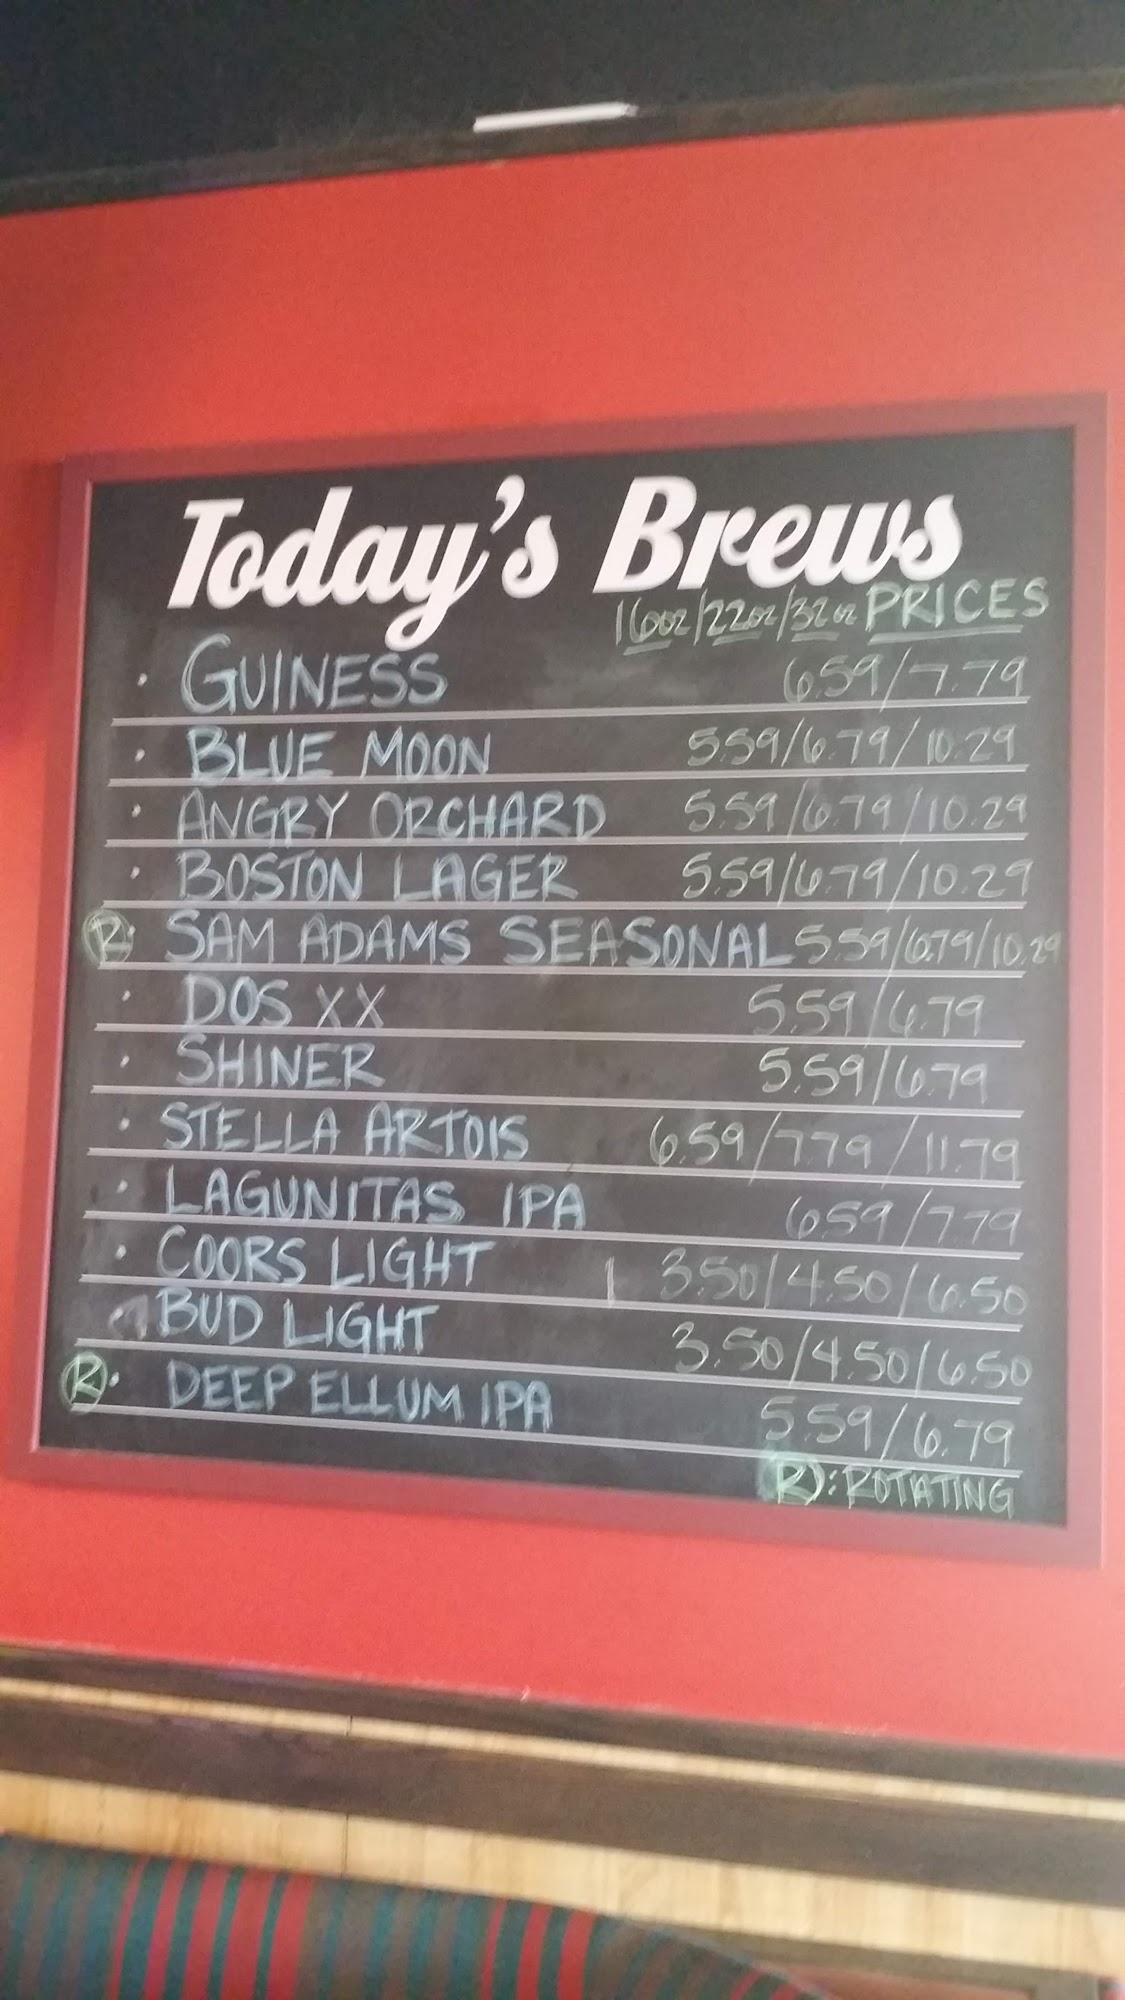 Today's Brews
16oz/22oz/32oz PRICES
· GUINESS 6.59/7.79
· BLUE MOON 5.59/6.79/10.29
· ANGRY ORCHARD 5.59/6.79/10.29
· BOSTON LAGER 5.59/6.79/10.29
R· SAM ADAMS SEASONAL 5.59/6.79/10.29
· DOS XX 5.59/6.79
· SHINER 5.59/6.79
· STELLA ARTOIS 6.59/7.79/11.79
· LAGUNITAS IPA 6.59/7.79
· COORS LIGHT 3.50/4.50/6.50
· BUD LIGHT 3.50/4.50/6.50
R· DEEP ELLUM IPA 5.59/6.79
R: ROTATING